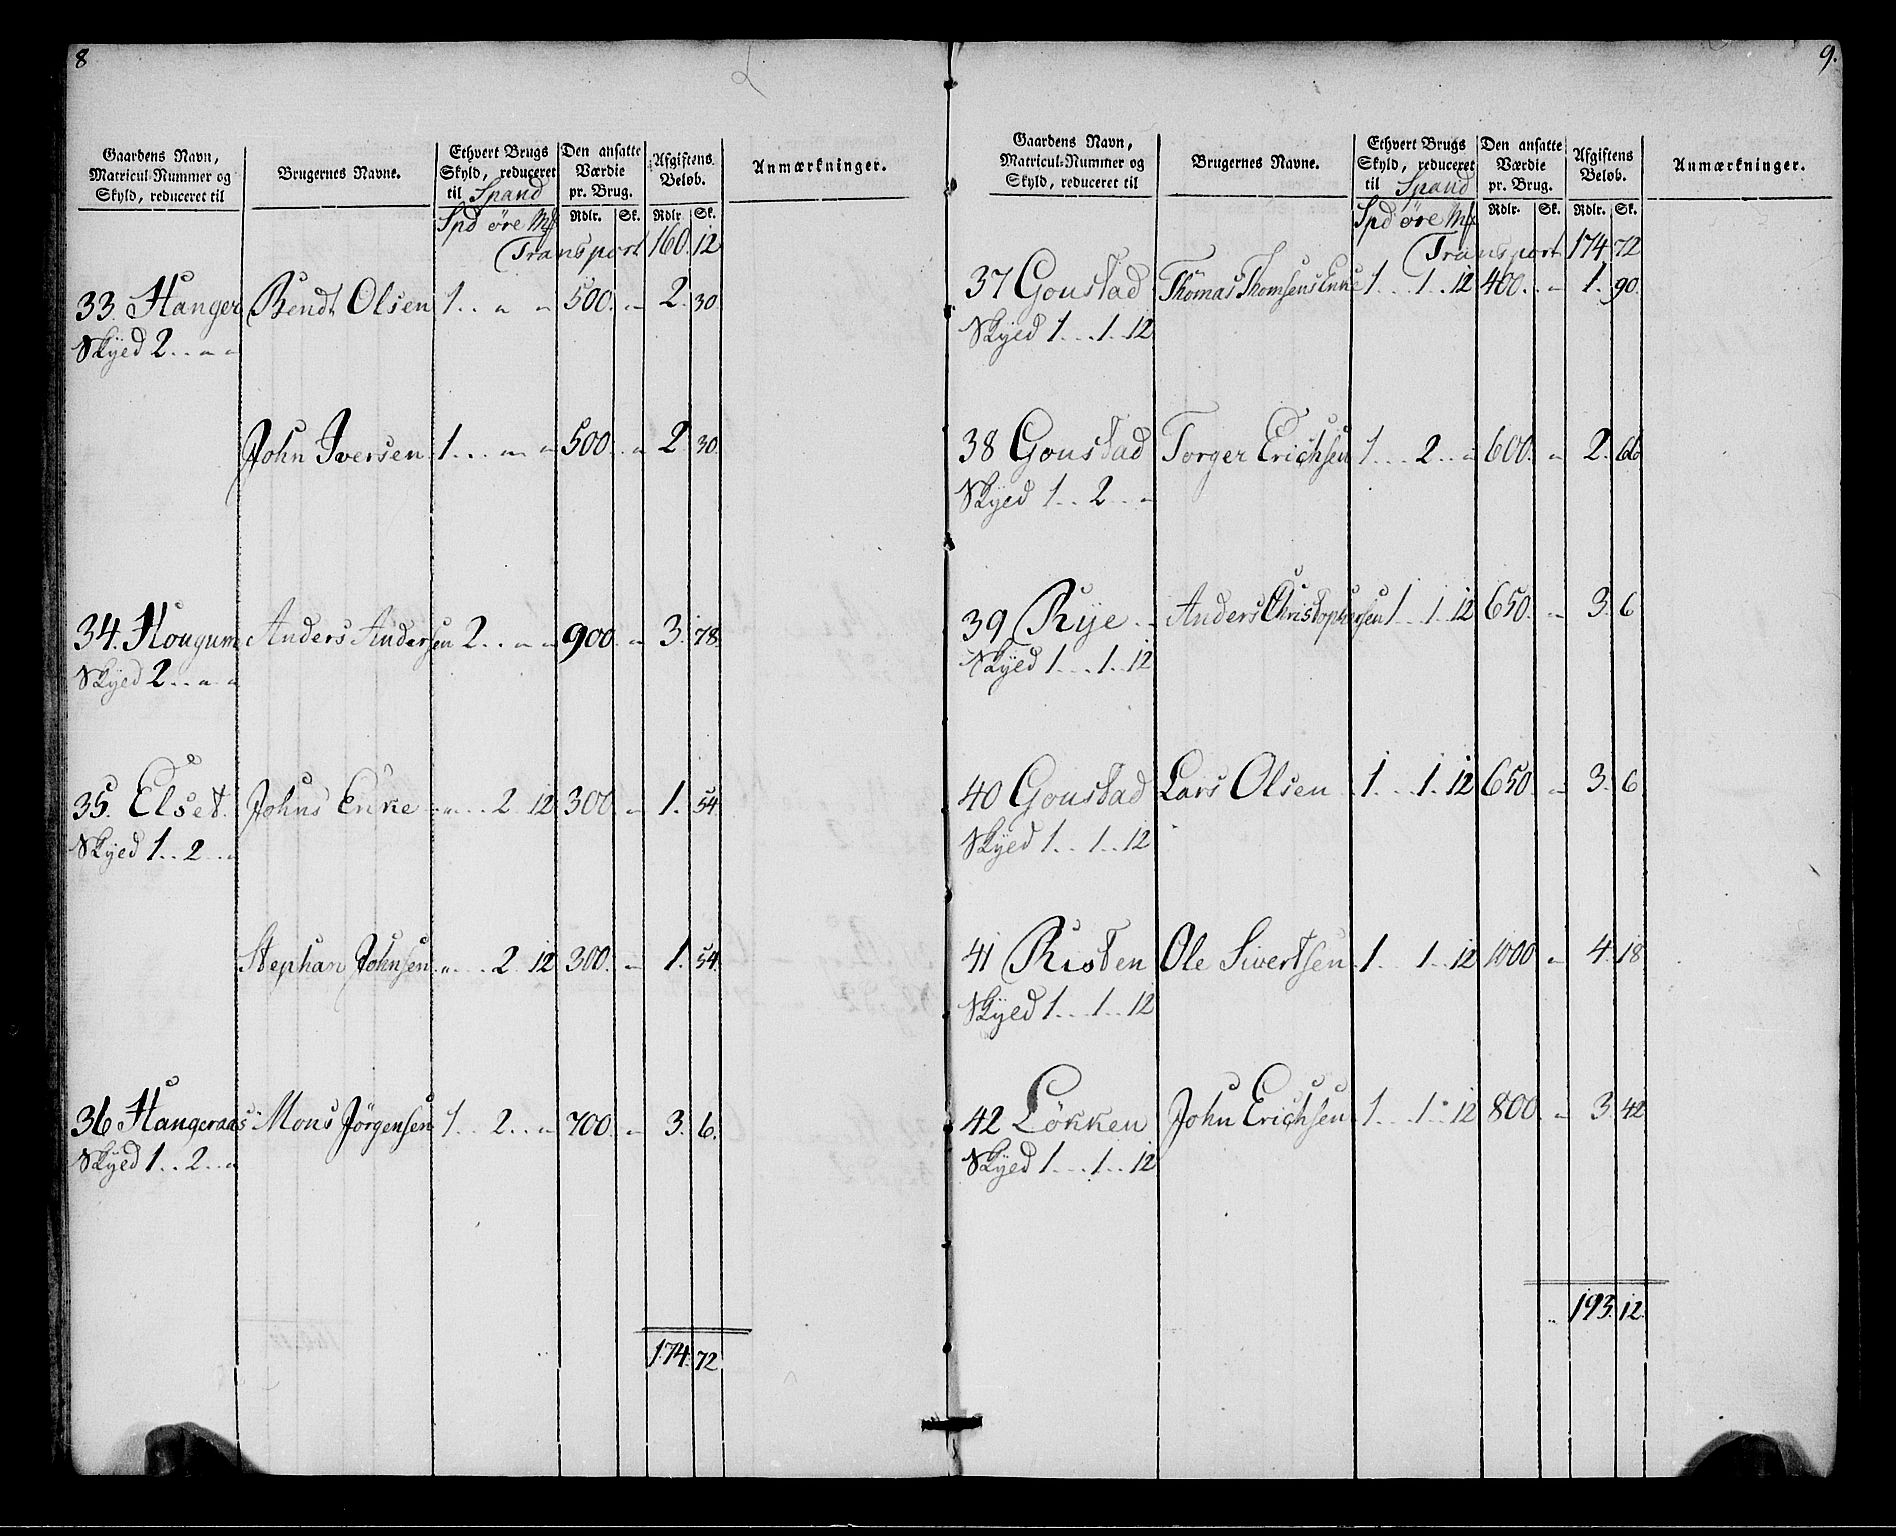 8
Gaardens Navn, Matricul-Nummer og Skyld, reduceret til | Brugernes Navne. | Ethvert Brugs Skyld, reduceret til Spand | Den ansatte Værdie pr. Brug. | Afgiftens Beløb. | Anmærkninger.
Spd øre Mk | Rdlr. | Sk. | Rdlr. | Sk.
Transport 160. 12
33. Hanger Bendt Olsen 1 . . „ „ 500. „ 2. 30.
Skyed 2 . . „ „
John Iversen 1 . . . „ „ 500. „ 2 30.
34. Hougum Anders Andersen 2 . . „ „ 900. „ 3. 78.
Skyed 2 . . „ „
35. Elset. Johns Enke „ . . 2 12 300. „ 1. 54.
Skyed 1 . . 2 . . „
Stephan Johnsen „ . . 2 12 300. „ 1. 54.
36 Hangeraas Mons Jørgensen 1 . . 2 . . „ 700. „ 3. 6.
Skyed 1 . . 2 . . „
174. 72
9.
Gaardens Navn, Matricul-Nummer og Skyld, reduceret til | Brugernes Navne. | Ethvert Brugs Skyld, reduceret til Spand | Den ansatte Værdie pr. Brug. | Afgiftens Beløb. | Anmærkninger.
Spd øre Mk | Rdlr. | Sk. | Rdlr. | Sk.
Transport 174. 72
37 Gonstad Thomas Thomsens Enke 1 . . 1 . . 12 400. „ 1. 90.
Skyed 1 . . . 1 . . 12
38 Gonstad Torger Erichsen 1 . . . 2 . . „ 600. „ 2. 66
Skyed 1 . . 2 . . „
39 Rye Anders Christophersen 1 . 1 . 12 650. „ 3. 6
Skyed 1 . . . 1 . . 12
40 Gonstad Lars Olsen 1 . . . 1 . 12 650. „ 3. 6
Skyed 1 . . 1 . . 12
41 Risten Ole Sivertsen 1 . 1 . . 12 1000 „ 4. 18
Skyed 1 . . . 1 . . 12
42 Løkken John Erichsen 1 . . . 1 . 12 800. „ 3. 42
Skyed 1 . . . 1 . . 12
193. 12.